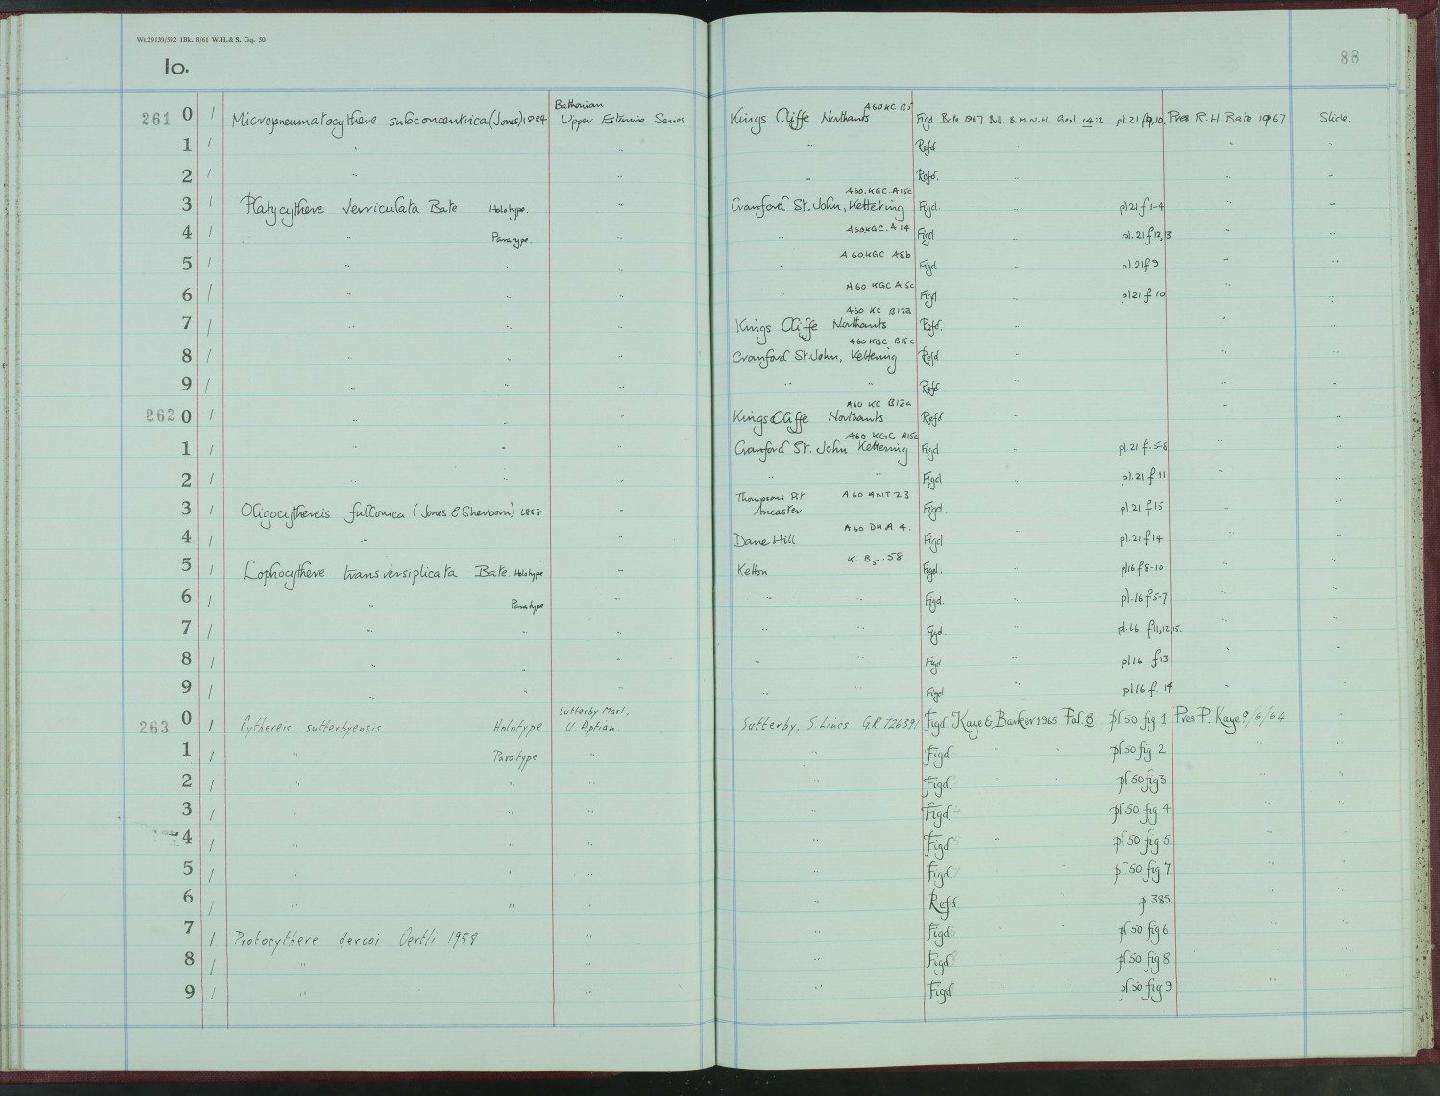 Wt.29139/592 1Bk. 8/61 W.H.& S. Gp. 50
Io.
88
261 0 / Micropneumatocythere subconcentrica (Jones) 1884 Bathonian Upper Estuarine Series Kings Cliffe Northants A60 KC B5 Figd Bate 1967 Bul. B.M.N.H. Geol 14:2 pl 21 f9,10. Pres R.H. Bate 1967 Slide.
1 / " " " Refd " "
2 / " " " Refd. " "
3 / Platycythere verriculata Bate Holotype. " Cranford St. John, Kettering A60.KGC.A15c Figd. " pl 21 f 1-4 " "
4 / " Paratype. " " A60KGC.A14 Figd " pl.21 f 12,13 " "
5 / " " " " A60.KGC A8b Figd " pl.21f9 " "
6 / " " " " A60 KGC A5c Figd " pl21 f 10 " "
7 / " " " Kings Cliffe Northants A60 KC B12a Refd. " " "
8 / " " " Cranford St.John, Kettering A60 KGC B15c Refd " " "
9 / " " " " " Refd " "
262 0 / " " " Kings Cliffe Northants A60 KC B12a Refd " " "
1 / " " " Cranford St. John Kettering A60 KGC A15c Figd " pl.21 f.5-8 " "
2 / " " " " " Figd " pl.21 f 11 " "
3 / Oligocythereis fullonica (Jones & Sherborn) 1888 " Thompsons Pit Ancaster A60 ANT 23 Figd. " pl 21 f15 " "
4 / " " Dane Hill A60 DHA 4. Figd " pl.21 f14 " "
5 / Lophocythere transversiplicata Bate. Holotype " Ketton K B3. 58 Figd. " pl16 f8-10 " "
6 / " Paratype " " " Figd. " pl.16 f5-7 " "
7 / " " " " " Figd. " pl.16 f11,12,15. " "
8 / " " " " " Figd " pl16 f13 " "
9 / " " " " " Figd " pl16 f. 14 " "
263 0 / Cythereis sutterbyensis Holotype Sutterby Marl. U. Aptian. Sutterby, S. Lincs GR TF26391 Figd. Kaye & Barker 1965 Pal. 8 pl 50 fig 1 Pres P. Kaye 9/6/64
1 / " Paratype " " Figd " " pl 50 fig 2 "
2 / " " " " Figd. " pl 50 fig3 "
3 / " " " " Figd. " pl 50 fig 4 "
4 / " " " " Figd " pl 50 fig 5 "
5 / " " " " Figd " pl 50 fig 7 "
6 / " " " " Refd p 385
7 / Protocythere derooi Oertli 1958 " " Figd pl 50 fig6
8 / " " " Figd. pl 50 fig 8
9 / " " " Figd pl 50 fig 9 "